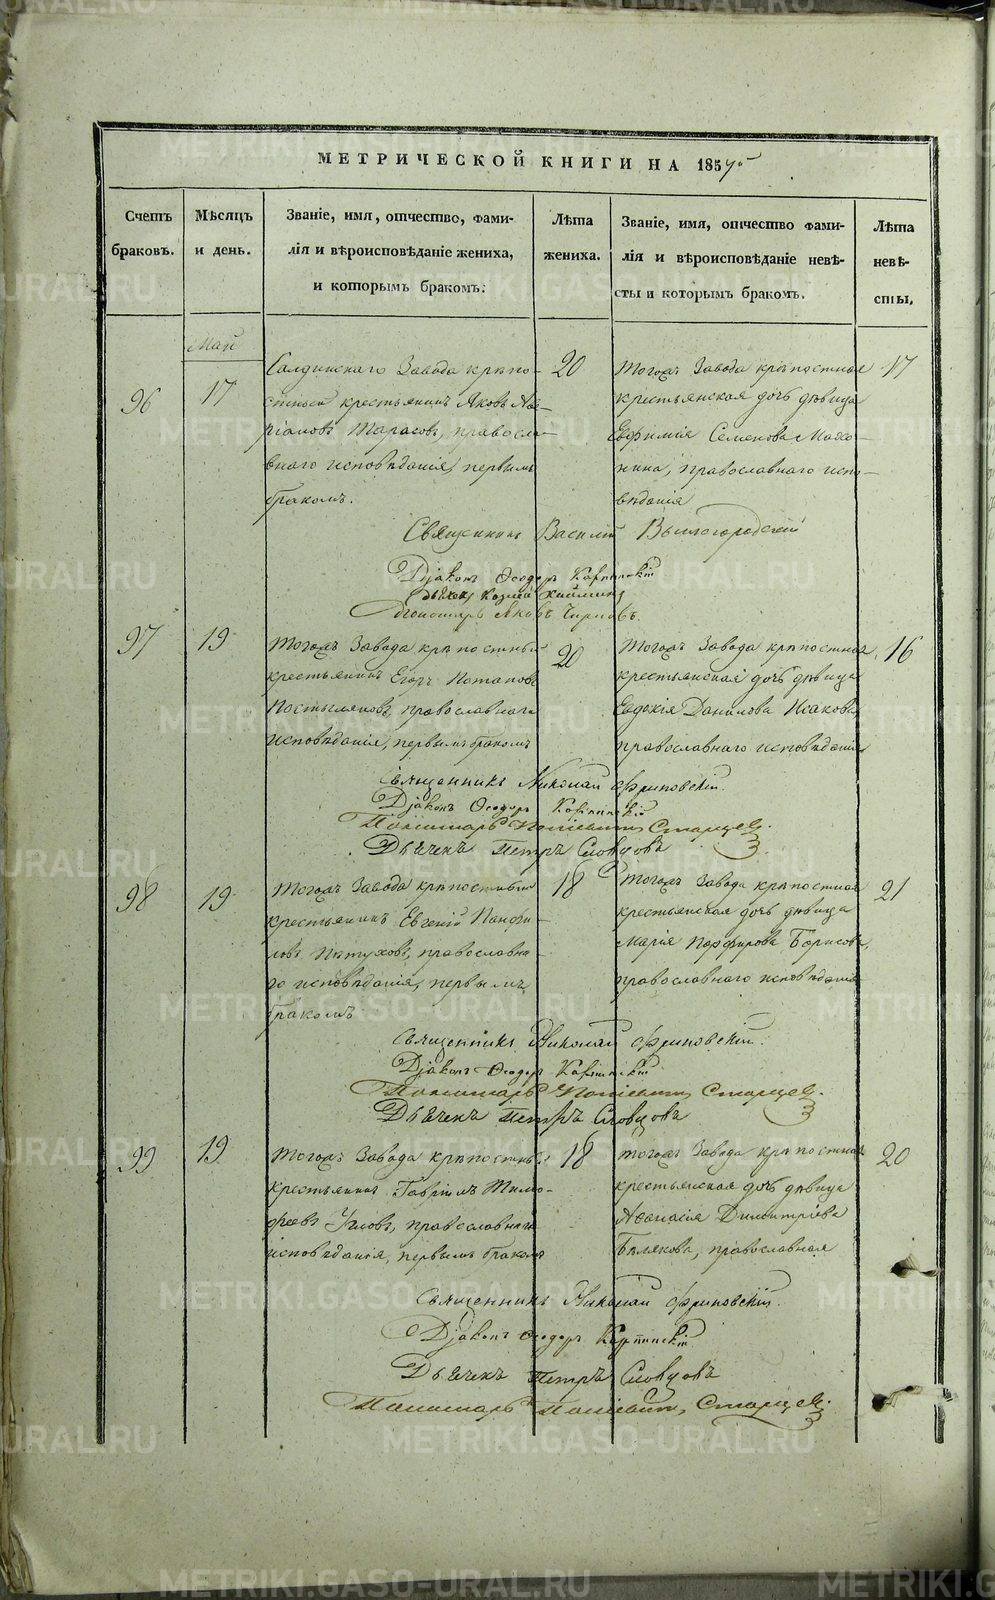 МЕТРИЧЕСКОЙ КНИГИ НА 185
Счетъ браковъ.
Мѣсяцъ и день.
Званіе, имя, отчество, фами-
лія и вѣроисповѣданіе жениха,
и которымъ бракомъ.
Лѣта жениха.
Званіе, имя, отчество фами-
лія и вѣроисповѣданіе невѣ-
сты и которымъ бракомъ.
Лѣта невѣ-
сты.
Май
96
17
Салдинскаго Завода крѣпо-
стный крестьянинъ Яковъ
Тарасовъ, правосла-
внаго исповѣданія, первымъ
бракомъ.
20
Тогожъ Завода крѣпостная
крестьянская дочь дѣвица
Евфимія Семенова
православнаго испо-
вѣданія
17
Священникъ Василій
Діаконъ Ѳеодоръ Карпинскій
Пономарь Яковъ
97
19
Тогожъ Завода крѣпостный
крестьянинъ Егоръ Потаповъ
Постыляковъ, православнаго
исповѣданія, первымъ бракомъ
20
Тогожъ Завода крѣпостная
крестьянская дочь дѣвица
Евдокія Данилова Исакова
православнаго исповѣданія
16
Священникъ Николай Флиповскій.
Діаконъ Ѳеодоръ Карпинскій
Пономарь Старцев.
Дьячекъ Петръ Словцовъ
98
19
Тогожъ Завода крѣпостный
крестьянинъ Евгеній Панфи-
ловъ Пѣтуховъ, православна-
го исповѣданія, первымъ
бракомъ
18
Тогожъ Завода крѣпостная
крестьянская дочь дѣвица
Марія Порфирова Борисова,
православнаго исповѣданія
21
Священникъ Николай Флиповскій.
Діаконъ Ѳеодоръ Карпинскій
Пономарь Старцев.
Дьячекъ Петръ Словцовъ
99
19
Тогожъ Завода крѣпостный
крестьянинъ Гавріилъ Тимо-
феевъ Узловъ, православнаго
исповѣданія, первымъ бракомъ
18
Тогожъ Завода крѣпостная
крестьянская дочь дѣвица
Аѳанасія Димитріева
Бѣлякова, православная
20
Священникъ Николай Флиповскій.
Діаконъ Ѳеодоръ Карпинскій
Дьячекъ Петръ Словцовъ
Пономарь Старцев.
METRIKI.GASO-URAL.RU